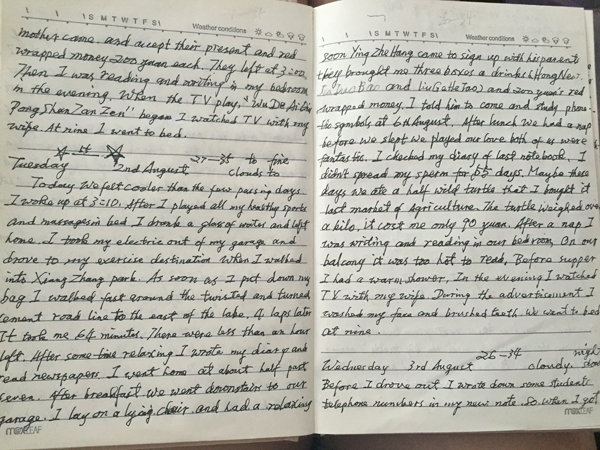 S M T W T F S Weather conditions
mother came. and accept their present and red
wrapped money 200 yuan each. They left at 3:00.
Then I was reading and writing in my bedroom
in the evening. When the TV play, "Wu De Ai
Pong Shen Zan Zen" began I watched TV with my
wife. At nine I went to bed.
27-35 to fine
Tuesday 2nd August clouds to
Today we felt cooler than the few passing days.
I woke up at 3=10. After I played all my healthy sports
and massages in bed I drank a glass of water and left
home. I took my electric out of my garage and
drove to my exercise destination when I walked
into Xiang Zhang park. As soon as I put down my
bag I walked fast around the twisted and turned
cement road line to the east of the lake. 4 laps later
It took me 64 minutes. There were less than an hour
left. After some time relaxing I wrote my diary and
read newspapers. I went home at about half past
seven. After breakfast we went downstairs to our
garage. I lay on a lying chair and had a relaxing
LEAF
S M T W T F S Weather conditions
soon Ying Zhe Hang came to sign up with his parents
they brought me three boxes a drink (HongNeo.
and Liu Ge He Tao) and 200 yuan red
wrapped money. I told him to come and study phone-
tic symbols at 6th August. After lunch we had a nap
before we slept we played our love both of us were
fantastic. I checked my diary of last notebook, I
didn't spread my sperm for 65 days. Maybe these
days we ate a half wild turtle that I bought it
last market of Agriculture. The turtle weighed over
a kilo, it cost me only 90 yuan. After a nap I
was writing and reading in our bedroom. On our
balcony it was too hot to read. Before supper
I had a warm shower. In the evening I watched
TV with my wife. During the advertisement I
washed my face and brushed teeth. We went to bed
at nine.
26-34 night
Wednesday 3rd August cloudy.
Before I drove out I wrote down some students
telephone numbers in my new note. So when I got
LEAF